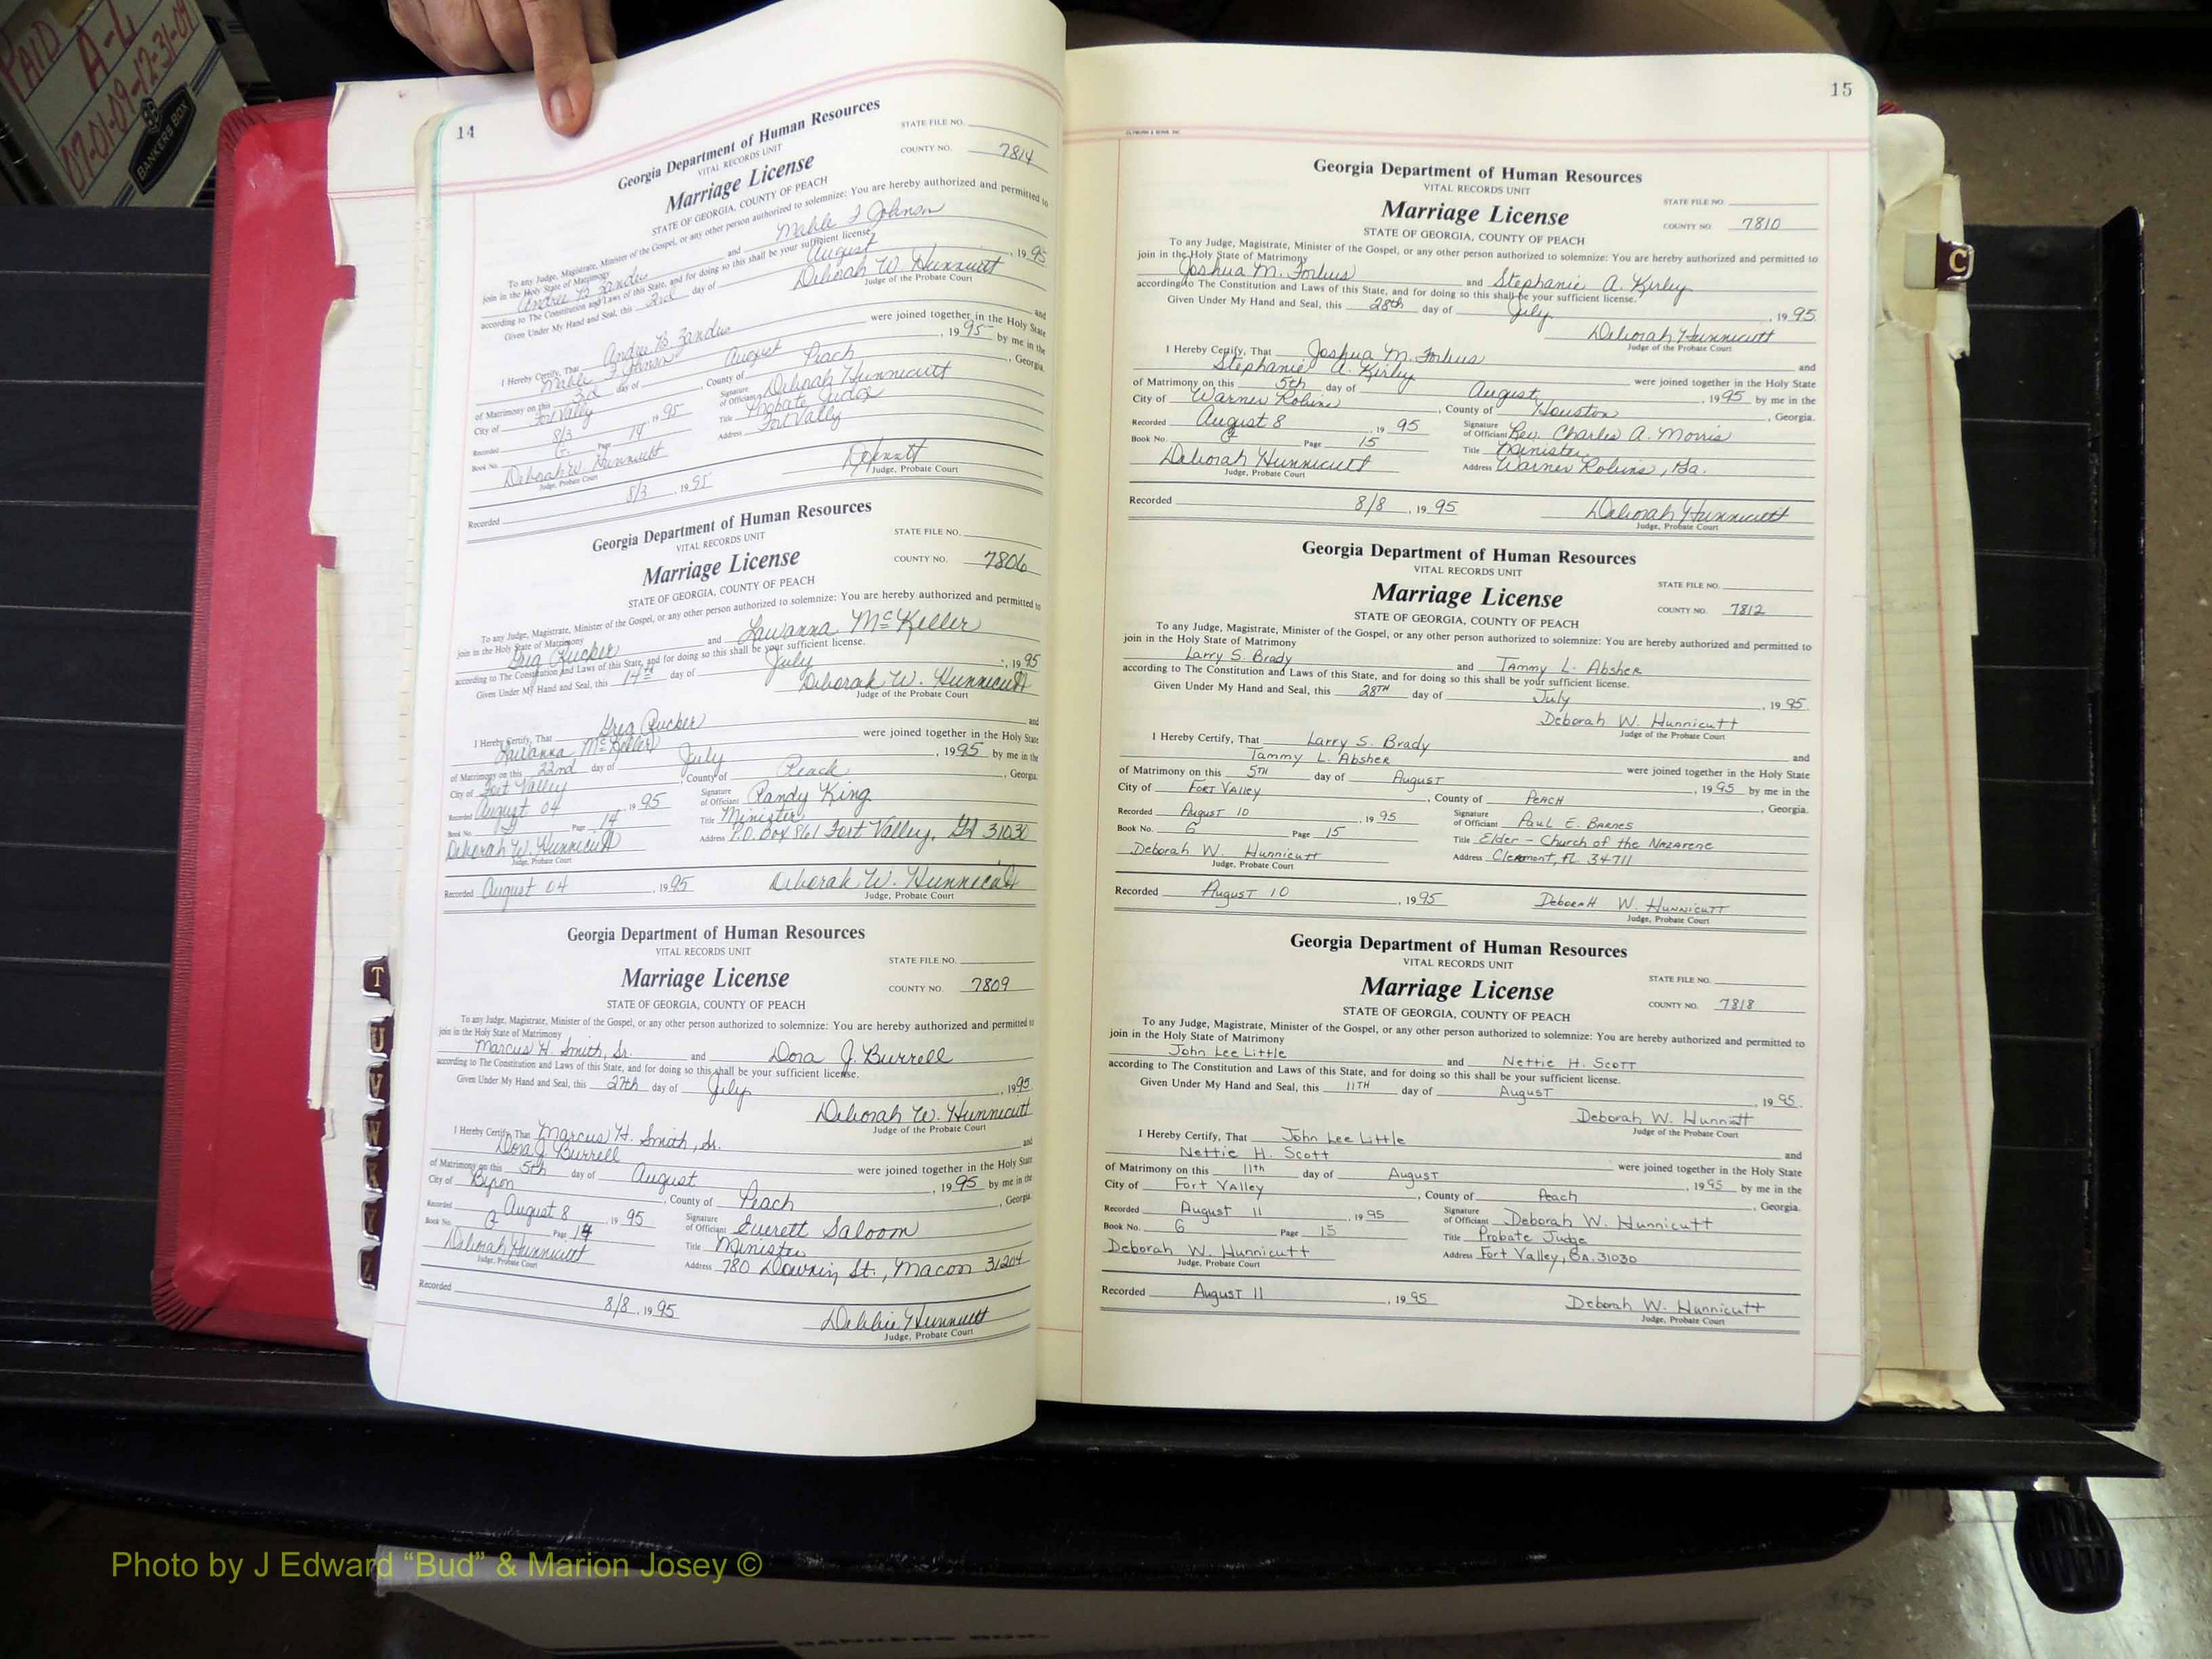 PAID
A-L
07-01-09-12-31-09
BANKERS BOX
14
Georgia Department of Human Resources
VITAL RECORDS UNIT
STATE FILE NO.
Marriage License
COUNTY NO. 7814
STATE OF GEORGIA, COUNTY OF PEACH
To any Judge, Magistrate, Minister of the Gospel, or any other person authorized to solemnize: You are hereby authorized and permitted to
join in the Holy State of Matrimony
Andre B and Mable J Johnson
according to The Constitution and Laws of this State, and for doing so this shall be your sufficient license.
Given Under My Hand and Seal, this 3rd day of August, 19 95
Deborah W. Hunnicutt
Judge of the Probate Court
I Hereby Certify, That Andre B and
Mable J Johnson were joined together in the Holy State
of Matrimony on this 3rd day of August, 19 95 by me in the
City of Fort Valley, County of Peach, Georgia.
Recorded 8/3, 19 95 Signature of Official Deborah Hunnicutt
Book No. G Page 14 Title Probate Judge
Deborah W. Hunnicutt Address Fort Valley
Judge, Probate Court
Recorded 8/3, 19 95
Judge, Probate Court
Georgia Department of Human Resources
VITAL RECORDS UNIT
STATE FILE NO.
Marriage License
COUNTY NO. 7806
STATE OF GEORGIA, COUNTY OF PEACH
To any Judge, Magistrate, Minister of the Gospel, or any other person authorized to solemnize: You are hereby authorized and permitted to
join in the Holy State of Matrimony
Greg Rucker and Lawanna McKeller
according to The Constitution and Laws of this State, and for doing so this shall be your sufficient license.
Given Under My Hand and Seal, this 14th day of July, 19 95
Deborah W. Hunnicutt
Judge of the Probate Court
I Hereby Certify, That Greg Rucker and
Lawanna McKeller were joined together in the Holy State
of Matrimony on this 22nd day of July, 19 95 by me in the
City of Fort Valley, County of Peach, Georgia.
Recorded August 04, 19 95 Signature of Official Randy King
Book No. G Page 14 Title Minister
Deborah W. Hunnicutt Address P.O. Box 861 Fort Valley, GA 31030
Judge, Probate Court
Recorded August 04, 19 95 Deborah W. Hunnicutt
Judge, Probate Court
Georgia Department of Human Resources
VITAL RECORDS UNIT
STATE FILE NO.
Marriage License
COUNTY NO. 7809
STATE OF GEORGIA, COUNTY OF PEACH
To any Judge, Magistrate, Minister of the Gospel, or any other person authorized to solemnize: You are hereby authorized and permitted to
join in the Holy State of Matrimony
Marcus H. Smith, Sr. and Dora J. Burrell
according to The Constitution and Laws of this State, and for doing so this shall be your sufficient license.
Given Under My Hand and Seal, this 27th day of July, 19 95
Deborah W. Hunnicutt
Judge of the Probate Court
I Hereby Certify, That Marcus H. Smith, Sr. and
Dora J. Burrell were joined together in the Holy State
of Matrimony on this 5th day of August, 19 95 by me in the
City of Byron, County of Peach, Georgia.
Recorded August 8, 19 95 Signature of Official Everett Saloom
Book No. G Page 14 Title Minister
Deborah Hunnicutt Address 780 Downing St., Macon 31204
Judge, Probate Court
Recorded 8/8, 19 95 Debbie Hunnicutt
Judge, Probate Court
T
U
V
W
X
Y
Z
15
Georgia Department of Human Resources
VITAL RECORDS UNIT
STATE FILE NO.
Marriage License
COUNTY NO. 7810
STATE OF GEORGIA, COUNTY OF PEACH
To any Judge, Magistrate, Minister of the Gospel, or any other person authorized to solemnize: You are hereby authorized and permitted to
join in the Holy State of Matrimony
Joshua M. Forbus and Stephanie A. Kirby
according to The Constitution and Laws of this State, and for doing so this shall be your sufficient license.
Given Under My Hand and Seal, this 28th day of July, 19 95
Deborah Hunnicutt
Judge of the Probate Court
I Hereby Certify, That Joshua M. Forbus and
Stephanie A. Kirby were joined together in the Holy State
of Matrimony on this 5th day of August, 19 95 by me in the
City of Warner Robins, County of Houston, Georgia.
Recorded August 8, 19 95 Signature of Official Rev. Charles A. Morris
Book No. G Page 15 Title Minister
Deborah Hunnicutt Address Warner Robins, Ga.
Judge, Probate Court
Recorded 8/8, 19 95 Deborah Hunnicutt
Judge, Probate Court
Georgia Department of Human Resources
VITAL RECORDS UNIT
STATE FILE NO.
Marriage License
COUNTY NO. 7812
STATE OF GEORGIA, COUNTY OF PEACH
To any Judge, Magistrate, Minister of the Gospel, or any other person authorized to solemnize: You are hereby authorized and permitted to
join in the Holy State of Matrimony
Larry S. Brady and Tammy L. Absher
according to The Constitution and Laws of this State, and for doing so this shall be your sufficient license.
Given Under My Hand and Seal, this 28TH day of July, 19 95
Deborah W. Hunnicutt
Judge of the Probate Court
I Hereby Certify, That Larry S. Brady and
Tammy L. Absher were joined together in the Holy State
of Matrimony on this 5TH day of August, 19 95 by me in the
City of Fort Valley, County of Peach, Georgia.
Recorded August 10, 19 95 Signature of Official Paul E. Barnes
Book No. G Page 15 Title Elder - Church of the Nazarene
Deborah W. Hunnicutt Address Clermont, FL 34711
Judge, Probate Court
Recorded August 10, 19 95 Deborah W. Hunnicutt
Judge, Probate Court
Georgia Department of Human Resources
VITAL RECORDS UNIT
STATE FILE NO.
Marriage License
COUNTY NO. 7818
STATE OF GEORGIA, COUNTY OF PEACH
To any Judge, Magistrate, Minister of the Gospel, or any other person authorized to solemnize: You are hereby authorized and permitted to
join in the Holy State of Matrimony
John Lee Little and Nettie H. Scott
according to The Constitution and Laws of this State, and for doing so this shall be your sufficient license.
Given Under My Hand and Seal, this 11TH day of August, 19 95
Deborah W. Hunnicutt
Judge of the Probate Court
I Hereby Certify, That John Lee Little and
Nettie H. Scott were joined together in the Holy State
of Matrimony on this 11th day of August, 19 95 by me in the
City of Fort Valley, County of Peach, Georgia.
Recorded August 11, 19 95 Signature of Official Deborah W. Hunnicutt
Book No. G Page 15 Title Probate Judge
Deborah W. Hunnicutt Address Fort Valley, GA. 31030
Judge, Probate Court
Recorded August 11, 19 95 Deborah W. Hunnicutt
Judge, Probate Court
C
Photo by J Edward “Bud” & Marion Josey ©